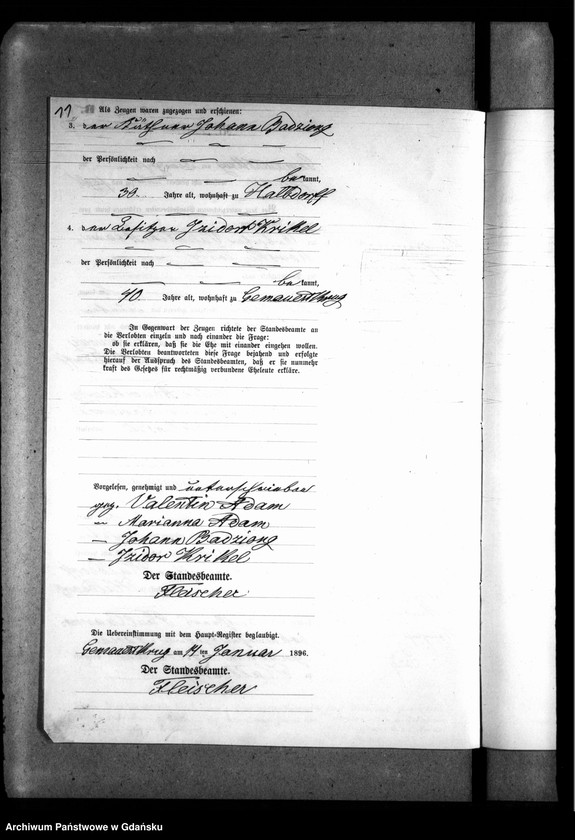 11
Als Zeugen waren zugezogen und erschienen:
3. der Käthner Johann Badziong
der Persönlichkeit nach
bekannt,
39 Jahre alt, wohnhaft zu Halbdorff
4. der Besitzer Izidor Krikel
der Persönlichkeit nach
bekannt,
40 Jahre alt, wohnhaft zu Gemauert Krug
In Gegenwart der Zeugen richtete der Standesbeamte an
die Verlobten einzeln und nach einander die Frage:
ob sie erklären, daß sie die Ehe mit einander eingehen wollen.
Die Verlobten beantworteten diese Frage bejahend und erfolgte
hierauf der Ausspruch des Standesbeamten, daß er sie nunmehr
kraft des Gesetzes für rechtmäßig verbundene Eheleute erkläre.
Vorgelesen, genehmigt und unterschrieben
gez. Valentin Adam
Marianna Adam
Johann Badziong
Izidor Krikel
Der Standesbeamte.
Fleischer
Die Uebereinstimmung mit dem Haupt-Register beglaubigt.
Gemauert Krug am 14 ten Januar 1896.
Der Standesbeamte.
Fleischer
Archiwum Państwowe w Gdańsku